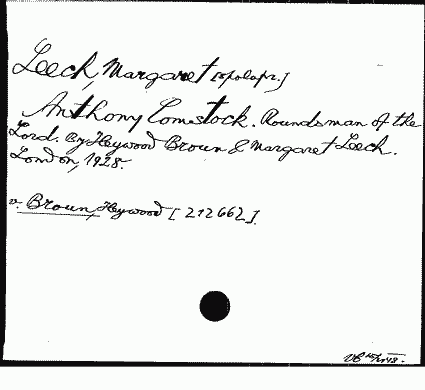 Leech, Margaret
Anthony Comstock. Roundsman of the
Lord. By Heywood Broun & Margaret Leech.
London, 1928.
v. Broun, Heywood [212662].